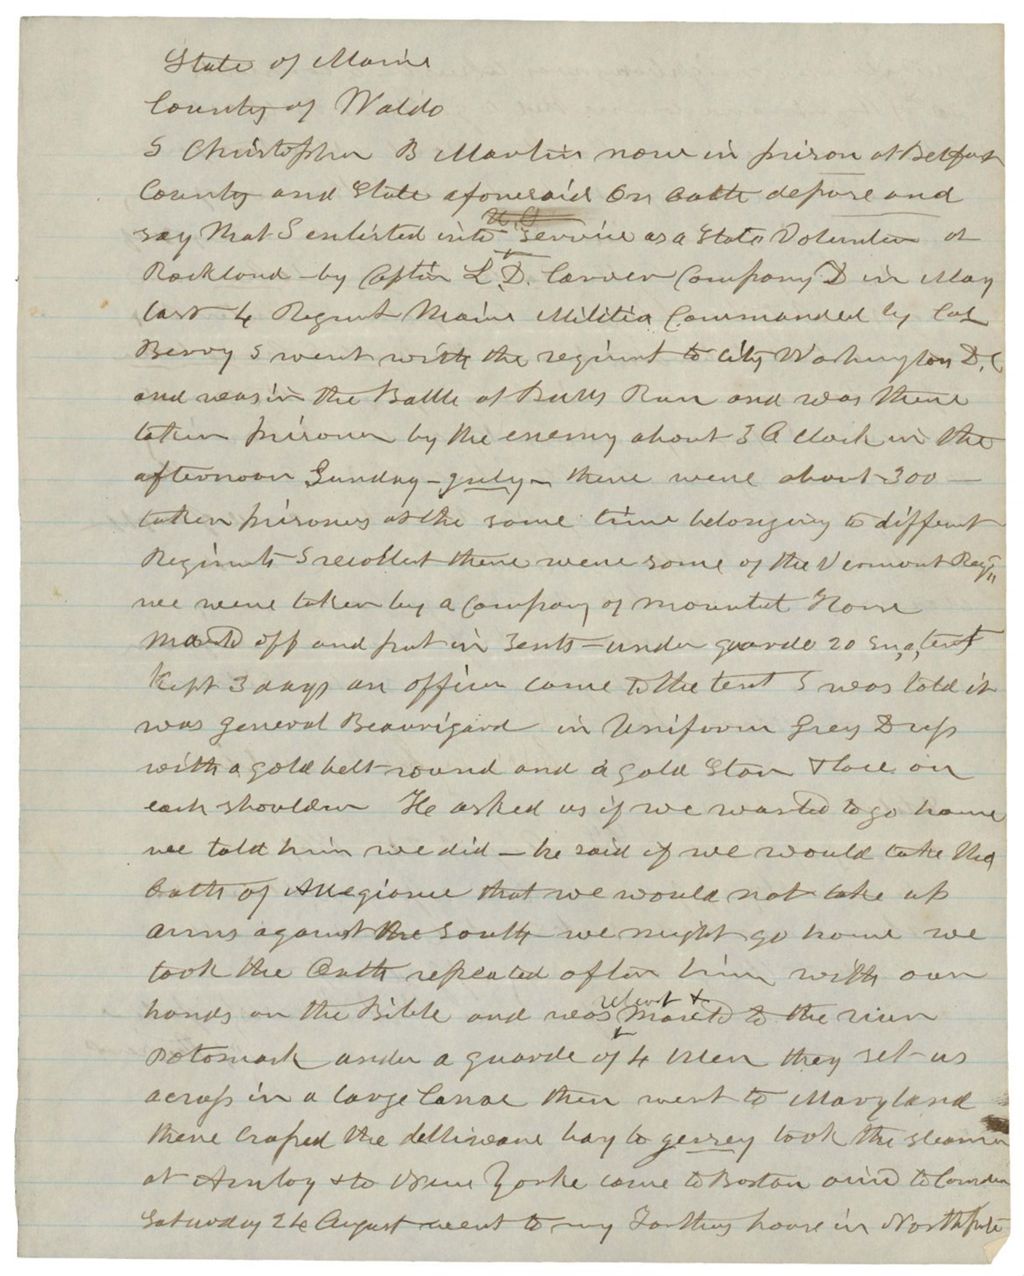 State of Maine
County of Waldo
I Christopher B Martin now in prison at Belfast
County and State aforesaid On Oath depose and
say that I enlisted into U.S. service as a State Volunteer at
Rockland by Captin L. D. Carver Company D in May
last 4 Regmt Maine Militia Commanded by Col
Berry I went with the regimt to City Washington D.C
and was in the Battle of Bulls Run and was there
taken prisoner by the enemy about 3 O clock in the
afternoon Sunday - july - there were about 300 -
taken prisoners at the same time belonging to diffent
Regiments I recollect there were some of the Vermont Regt
we were taken by a company of mounted Horse
off and put in Tents - under guarde 20 in a tent
Kept 3 days an officer came to the tent I was told it
was general Beaurigard in Uniform Grey Dress
with a gold belt round and a gold Star & lace on
each shoulder He asked us if we wanted to go home
we told him we did - he said if we would take the
Oath of Allegiance that we would not take up
arms against the South we might go home we
took the Oath repeated after him with our
hands on the Bible and was &  to the river
Potomack under a guarde of 4 Men they set us
across in a large Canoe then went to Maryland
there Crossed the delliweare bay to gersey took the steamer
at Amboy & to New Yorke came to Boston arivd to Camden
Saturday 24 August went to my Farthers house in Northport